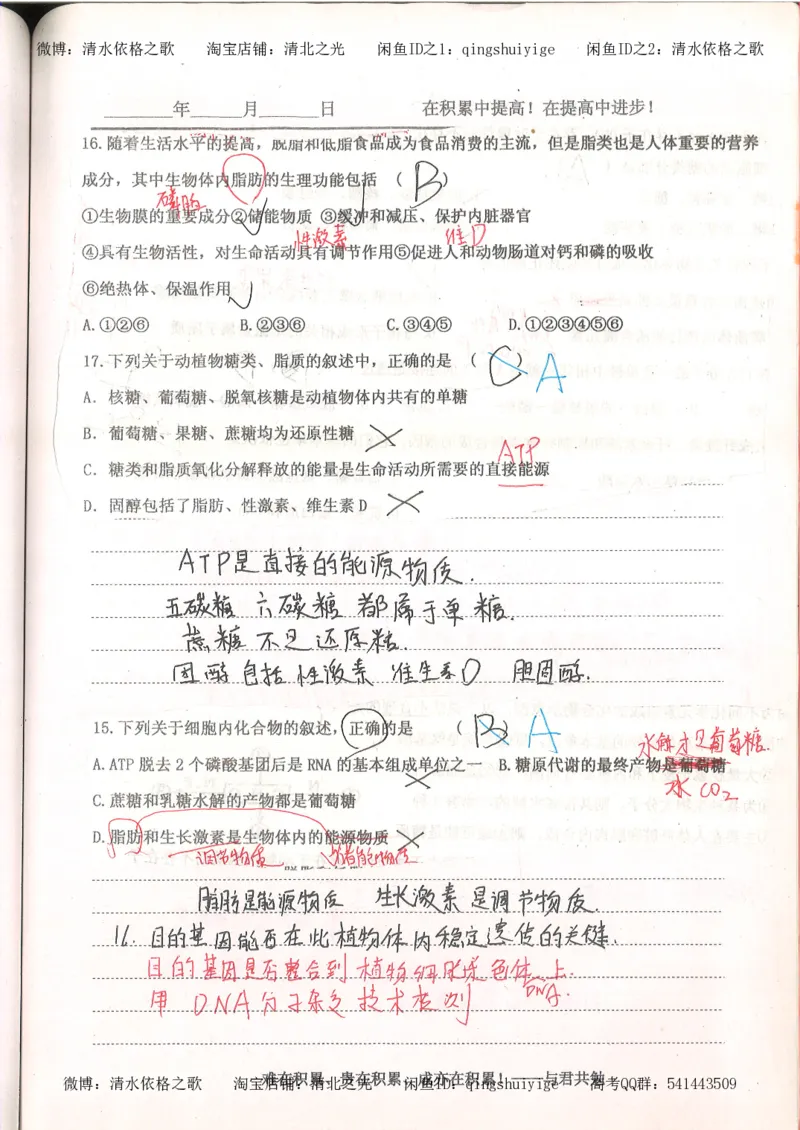 微博：清水依格之歌 淘宝店铺：清北之光 闲鱼ID之1：qingshuiyige 闲鱼ID之2：清水依格之歌
______年______月______日 在积累中提高！在提高中进步！
16.随着生活水平的提高，脱脂和低脂食品成为食品消费的主流，但是脂类也是人体重要的营养
成分，其中生物体内脂肪的生理功能包括 （ B ）
磷脂
①生物膜的重要成分②储能物质 ③缓冲和减压、保护内脏器官
性激素 维D
④具有生物活性，对生命活动具有调节作用⑤促进人和动物肠道对钙和磷的吸收
⑥绝热体、保温作用
A.①②⑥ B.②③⑥ C.③④⑤ D.①②③④⑤⑥
17.下列关于动植物糖类、脂质的叙述中，正确的是 （ C ） A
A. 核糖、葡萄糖、脱氧核糖是动植物体内共有的单糖
B. 葡萄糖、果糖、蔗糖均为还原性糖
ATP
C. 糖类和脂质氧化分解释放的能量是生命活动所需要的直接能源
D. 固醇包括了脂肪、性激素、维生素D
ATP是直接的能源物质.
五碳糖 六碳糖 都属于单糖.
蔗糖不是还原糖.
固醇包括性激素 维生素D 胆固醇.
15.下列关于细胞内化合物的叙述，正确的是 （ B ） A
水解才是葡萄糖.
A.ATP脱去2个磷酸基团后是RNA的基本组成单位之一 B.糖原代谢的最终产物是葡萄糖
水 CO2
C.蔗糖和乳糖水解的产物都是葡萄糖
D.脂肪和生长激素是生物体内的能源物质
调节物质 储能物质
脂肪是能源物质 生长激素是调节物质.
16.目的基因能否在此植物体内稳定遗传的关键.
目的基因是否整合到植物细胞染色体上.
DNA.
用DNA分子杂交技术检测
难在积累，贵在积累，成亦在积累！——与君共勉
微博：清水依格之歌 淘宝店铺：清北之光 闲鱼ID：qingshuiyige 高考QQ群：541443509